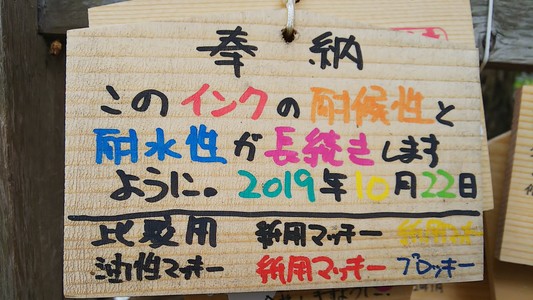 奉納
このインクの耐候性と
耐水性が長続きします
ように。2019年10月22日
比較用 紙用マッキー 紙用マッキー
油性マッキー 紙用マッキー プロッキー